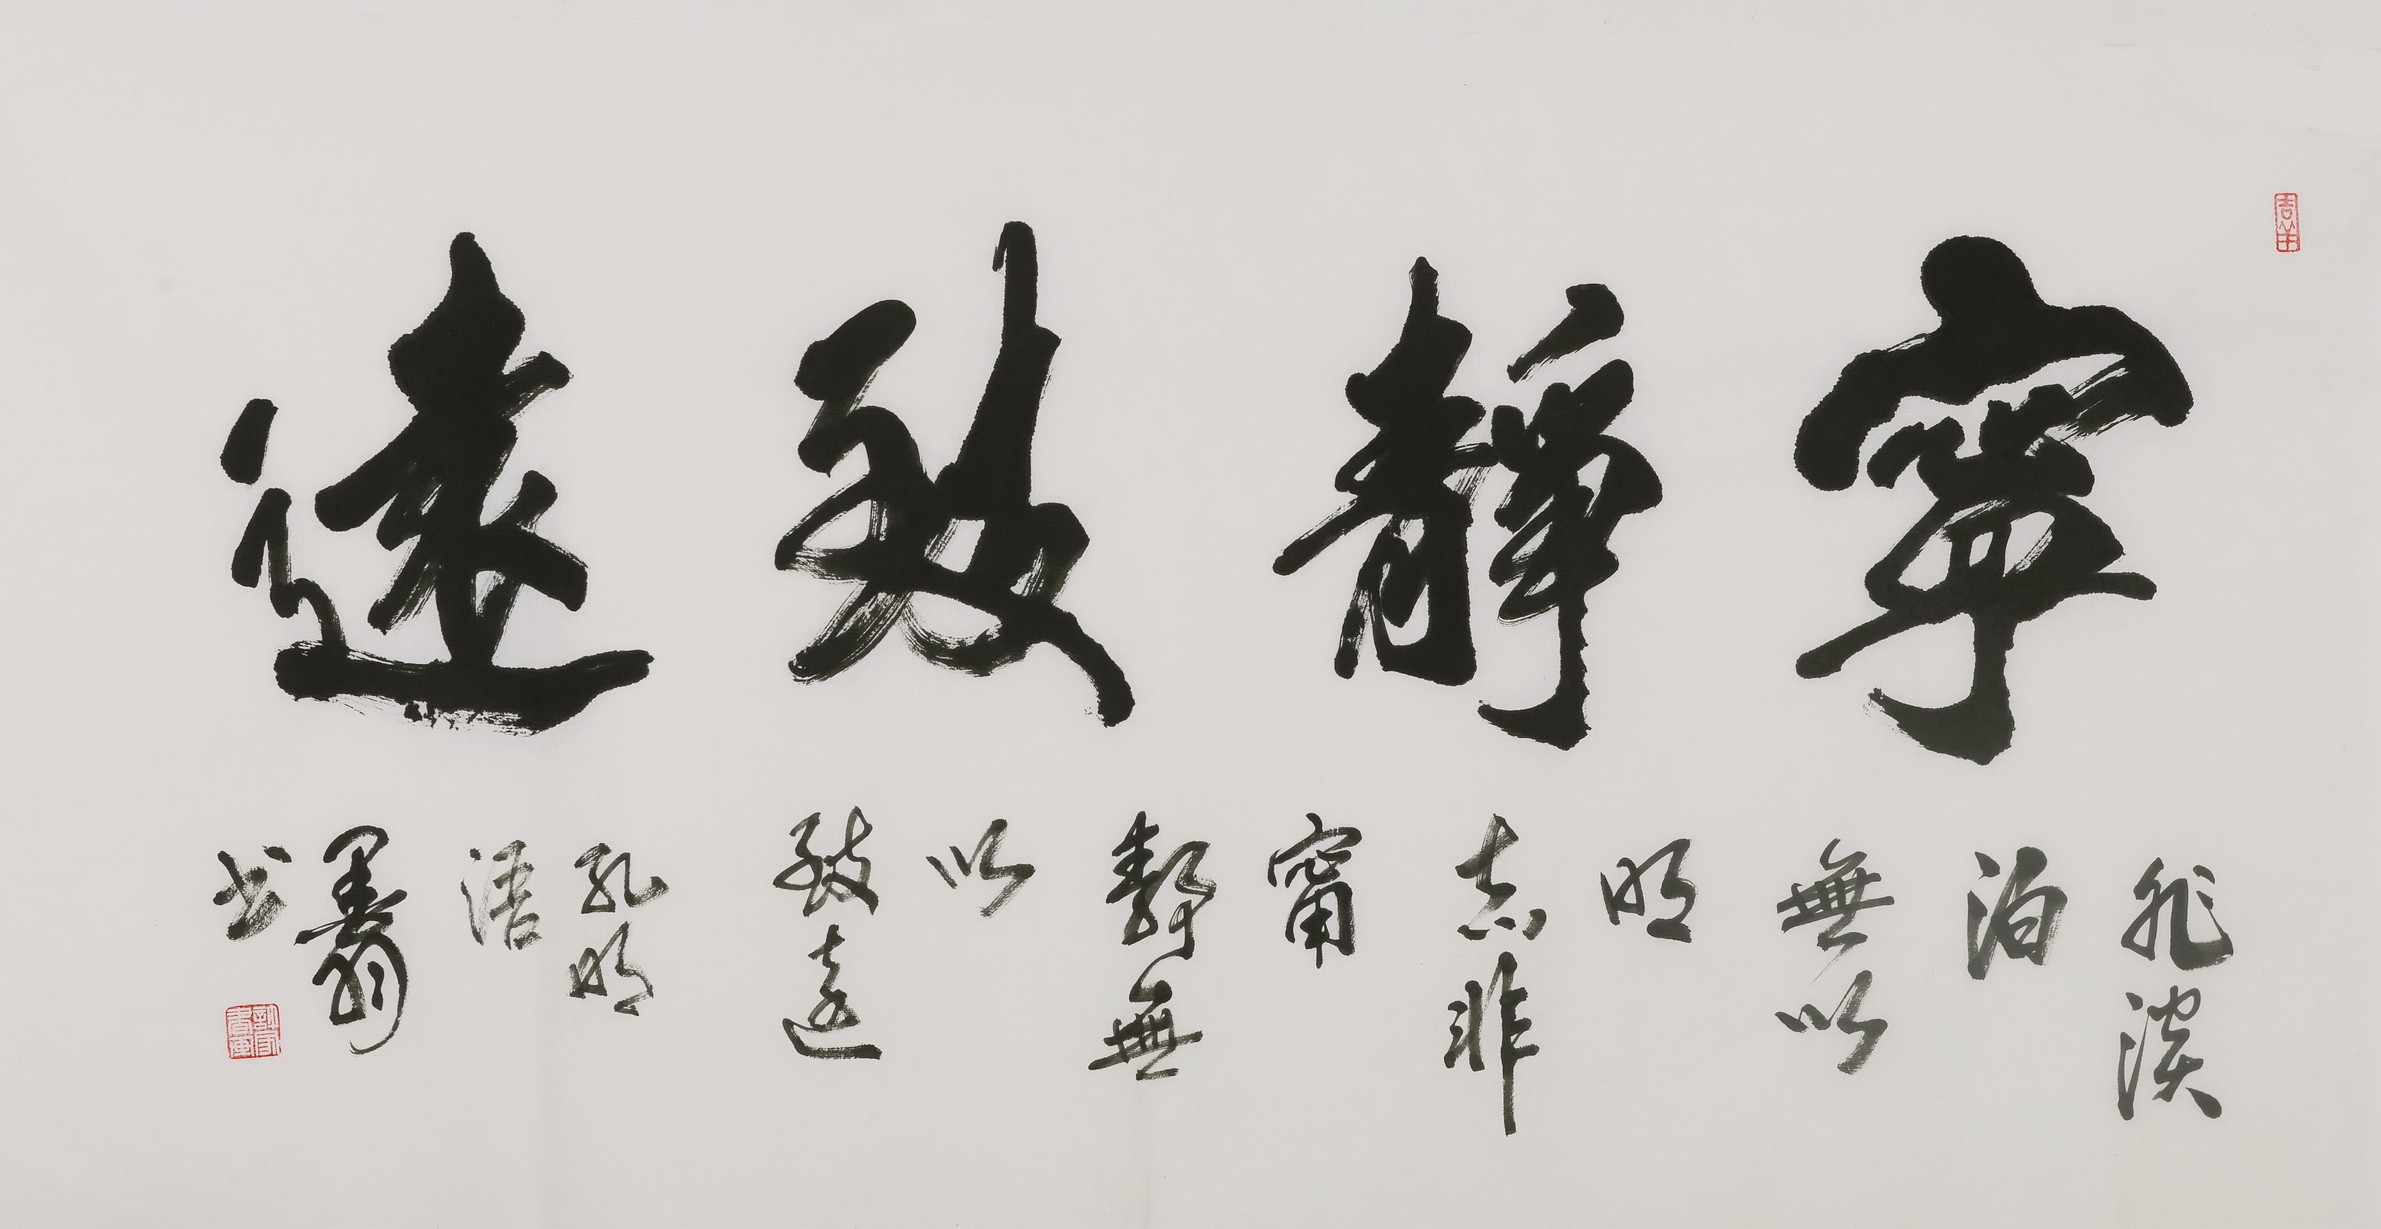 寧靜致遠
非淡
泊
無以
明
志非
甯
靜無
以
致遠
孔明
語
墨翁
書